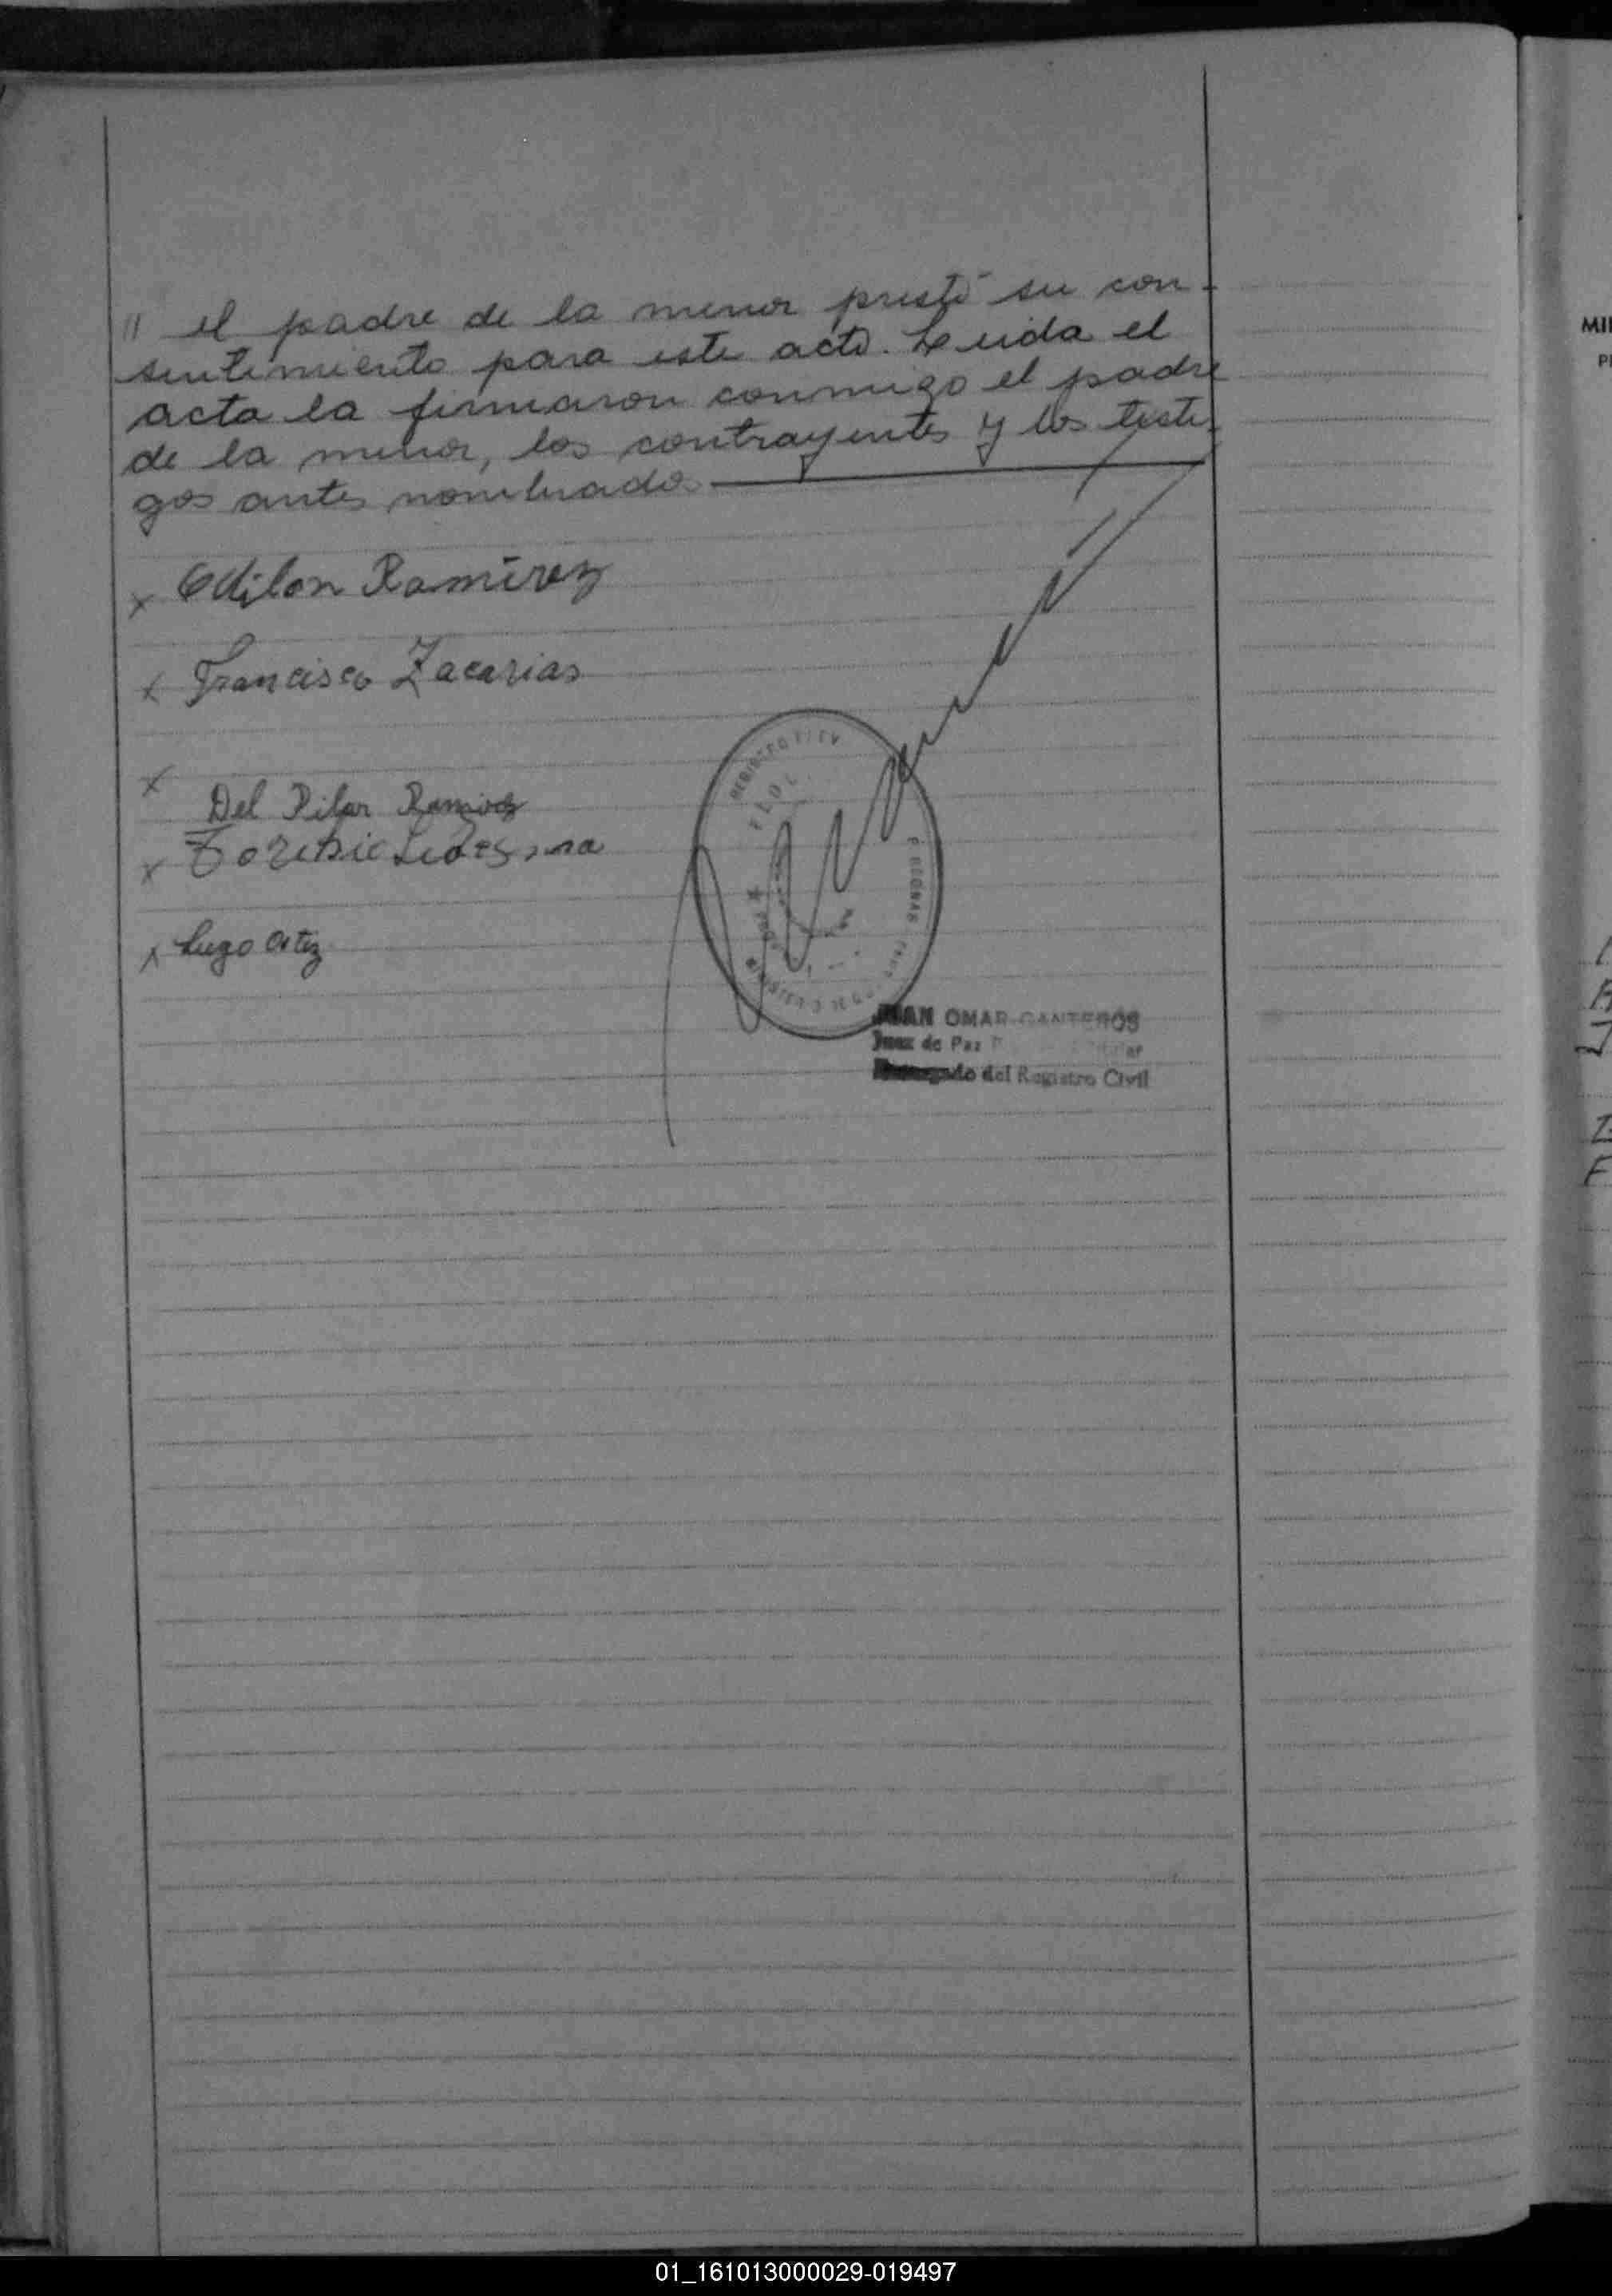 " el padre de la menor prestó su con-
sentimiento para este acto. Leida el
acta la firmaron conmigo el padre
de la menor, los contrayentes y los testi-
gos antes nombrados
x Odilon Ramírez
x Francisco Zacarias
x
Del Pilar Ramirez
x Toribio Ledesma
x Lugo Ortiz
REGISTRO
JUAN OMAR CANTEROS
Juez de Paz
Encargado del Registro Civil
MIN
01_161013000029-019497